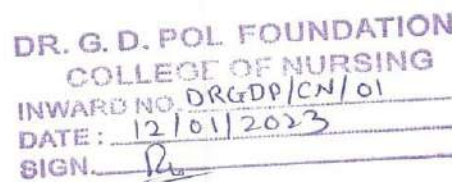 DR. G. D. POL FOUNDATION
COLLEGE OF NURSING
INWARD NO. DRGDP/CN/01
DATE: 12/01/2023
SIGN.